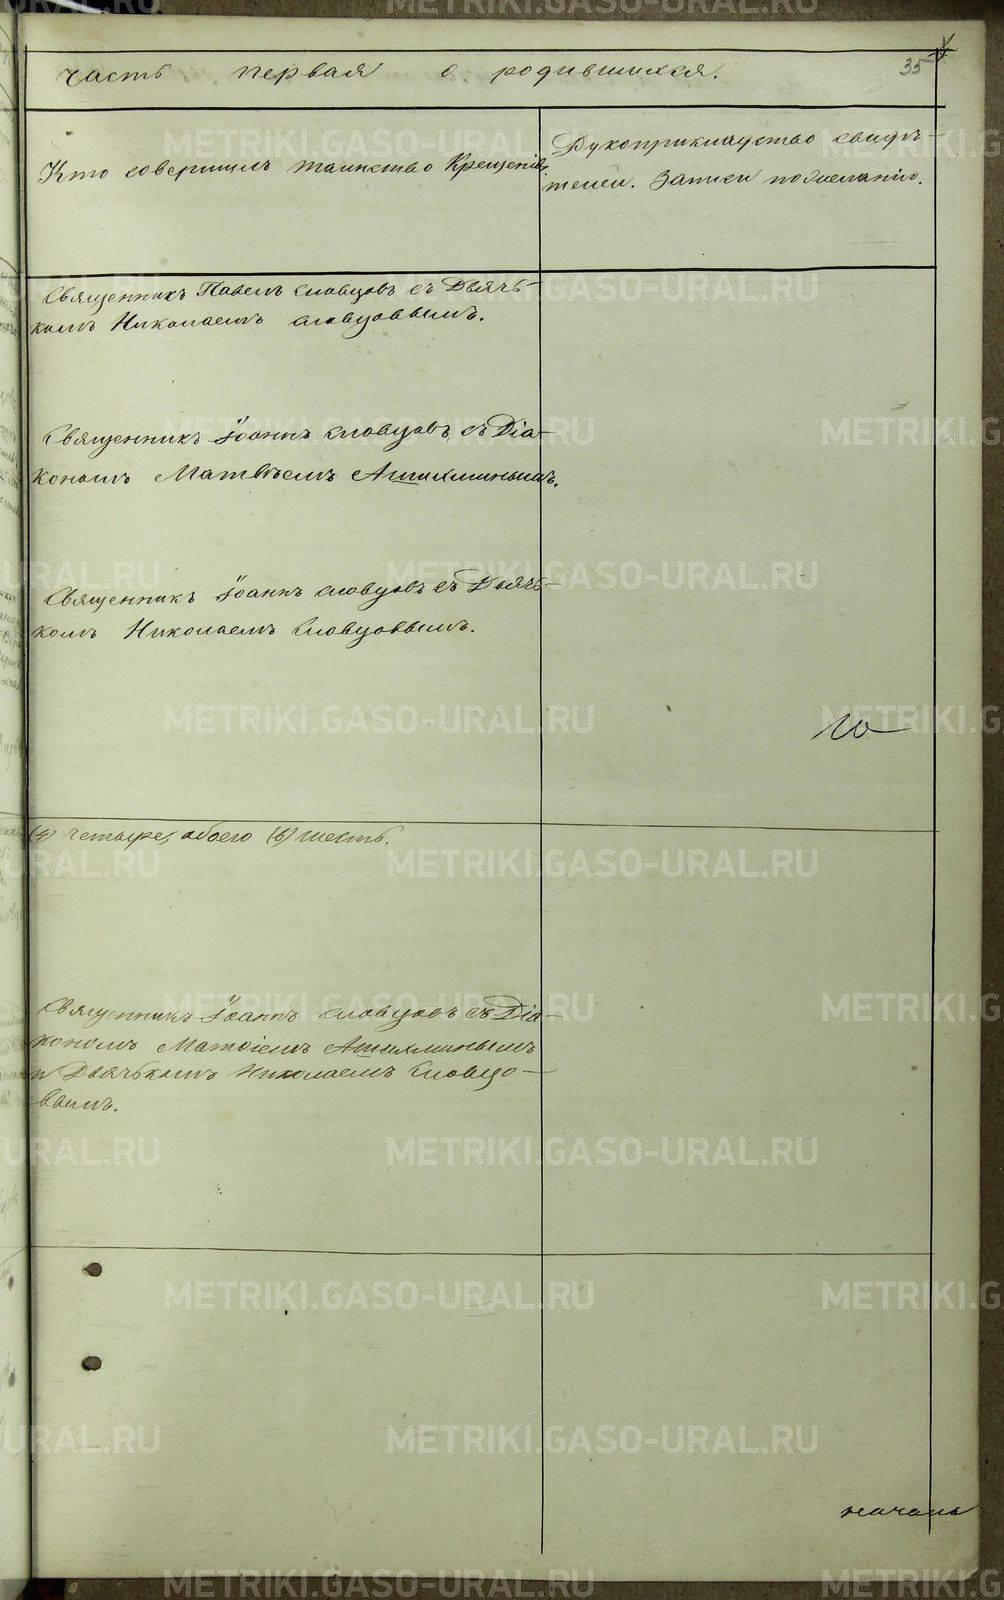 часть первая о родившихся.
35
Кто совершилъ таинство Крещенія.
Рукоприкладство свидѣ-
телей. Записи по желанію.
Священникъ Павелъ Словцовъ съ Дьячь-
комъ Николаемъ Словцовымъ.
Священникъ Іоаннъ Словцовъ, съ Діа-
кономъ Матвѣемъ Ашихминымъ.
Священникъ Іоаннъ Словцовъ съ Дьячь-
комъ Николаемъ Словцовымъ.
(4) четыре, обоего (6) шесть.
Священникъ Іоаннъ Словцовъ съ Діа-
кономъ Матвіемъ Ашихминымъ
и Дьячькомъ Николаемъ Словцо-
вымъ.
METRIKI.GASO-URAL.RU